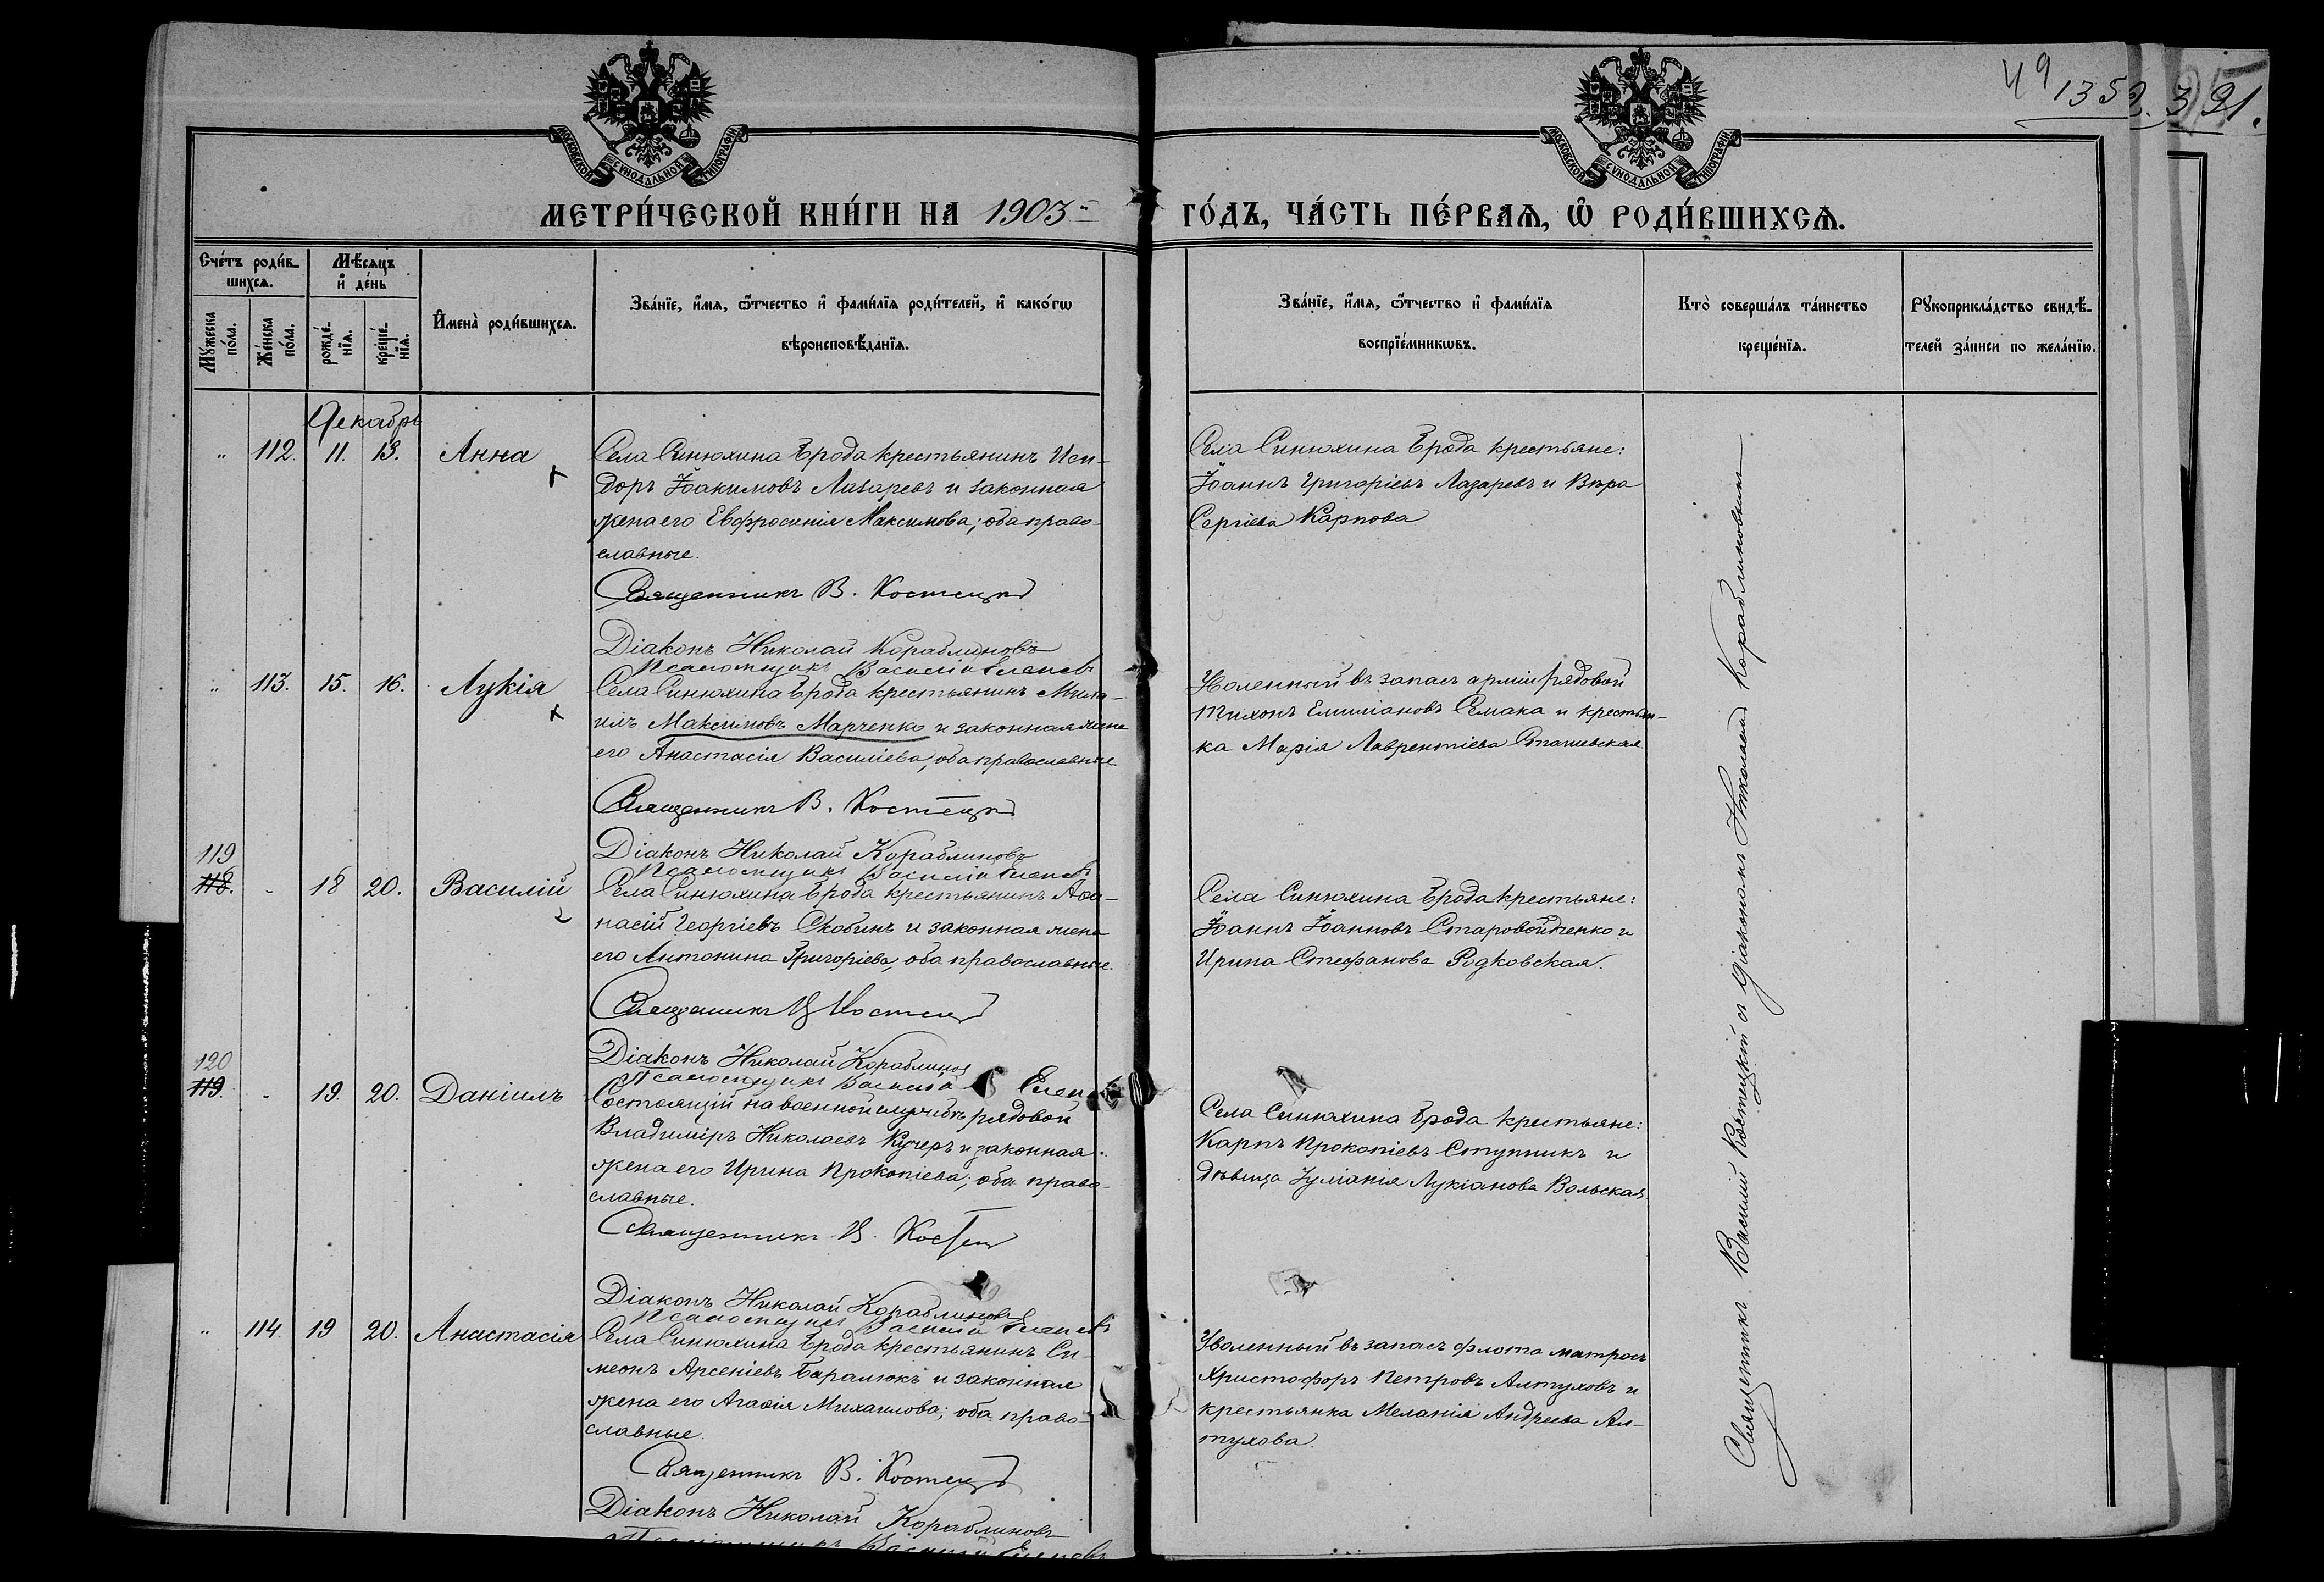 49 1352. 3) 91.
МОСКОВСКОЙ СѴНОДАЛЬНОЙ ТИПОГРАФІИ
МОСКОВСКОЙ СѴНОДАЛЬНОЙ ТИПОГРАФІИ
МЕТРИ́ЧЕСКОЙ КНИ́ГИ НА 1903 ГО́ДЪ, ЧА́СТЬ ПЕ́РВАѦ, Ѡ҆ РОДИ́ВШИХСѦ.
Сче́тъ роди́в-
шихсѧ.
Мꙋ́жеска по́ла.
Же́нска по́ла.
Мѣ́сѧцъ и҆ де́нь
рожде́-нїѧ.
креще́-нїѧ.
И҆мена̀ роди́вшихсѧ.
Зва́нїе, и҆́мѧ, ѻ҆́тчество и҆ фами́лїѧ роди́телей, и҆ како́гѡ
вѣроисповѣ́данїѧ.
Зва́нїе, и҆́мѧ, ѻ҆́тчество и҆ фами́лїѧ
воспрїе́мникѡвъ.
Кто̀ соверша́лъ та́инство
креще́нїѧ.
Рꙋкоприкла́дство свидѣ́-
телей за́писи по жела́нїю.
Декабрь
" 112. 11. 13. Анна
Села Синюхина Брода крестьянинъ Иси-
доръ Іоакимовъ Лазаревъ и законная
жена его Евфросинія Максимова; оба право-
славные.
Священникъ В. Костецкій
Діаконъ Николай Кораблиновъ
Псаломщикъ Василій
Села Синюхина Брода крестьяне:
Іоаннъ Григоріевъ Лазаревъ и Вѣра
Сергіева Карпова
" 113. 15. 16. Лукія
Села Синюхина Брода крестьянинъ Миха-
илъ Максимовъ Марченко и законная жена
его Анастасія Василіева, оба православные
Священникъ В. Костецкій
Діаконъ Николай Кораблиновъ
Псаломщикъ Василій
Уволенный въ запасъ арміи рядовой
Тихонъ Емиліановъ Семака и крестьян-
ка Марія Лаврентіева
119
118. - 18 20. Василій
Села Синюхина Брода крестьянинъ Аѳа-
насій Георгіевъ Скобинъ и законная жена
его Антонина Григоріева, оба православные.
Священникъ В. Костецкій
Діаконъ Николай Кораблиновъ
Псаломщикъ Василій
Села Синюхина Брода крестьяне:
Іоаннъ Іоанновъ Старовойтченко и
Ирина Стефанова Родковская.
120
119. - 19. 20. Даніилъ
Состоящій на военной службѣ рядовой
Владиміръ Николаевъ Кучеръ и законная
жена его Ирина Прокопіева; оба право-
славные.
Священникъ В. Костецкій
Діаконъ Николай Кораблиновъ
Псаломщикъ Василій
Села Синюхина Брода крестьяне:
Карпъ Прокопіевъ Ступникъ и
дѣвица Іуліанія Лукіанова Вольская
" 114. 19 20. Анастасія
Села Синюхина Брода крестьянинъ Си-
меонъ Арсеніевъ Баралюкъ и законная
жена его Агаѳія Михаилова; оба право-
славные.
Священникъ В. Костецкій
Діаконъ Николай Кораблиновъ
Псаломщикъ Василій
Уволенный въ запасъ флота матросъ
Христофоръ Петровъ Алтуховъ и
крестьянка Меланія Андреева Ал-
тухова.
Священникъ Василій Костецкій съ діакономъ Николаемъ Кораблиновымъ